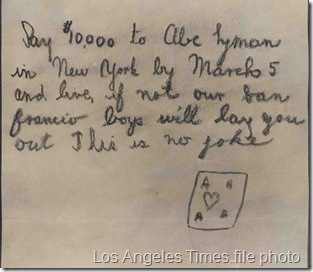 Pay $10,000 to Abe Lyman
in New York by March 5
and live, if not our San
Francio boys will lay you
out This is no joke
A A
A A
Los Angeles Times file photo